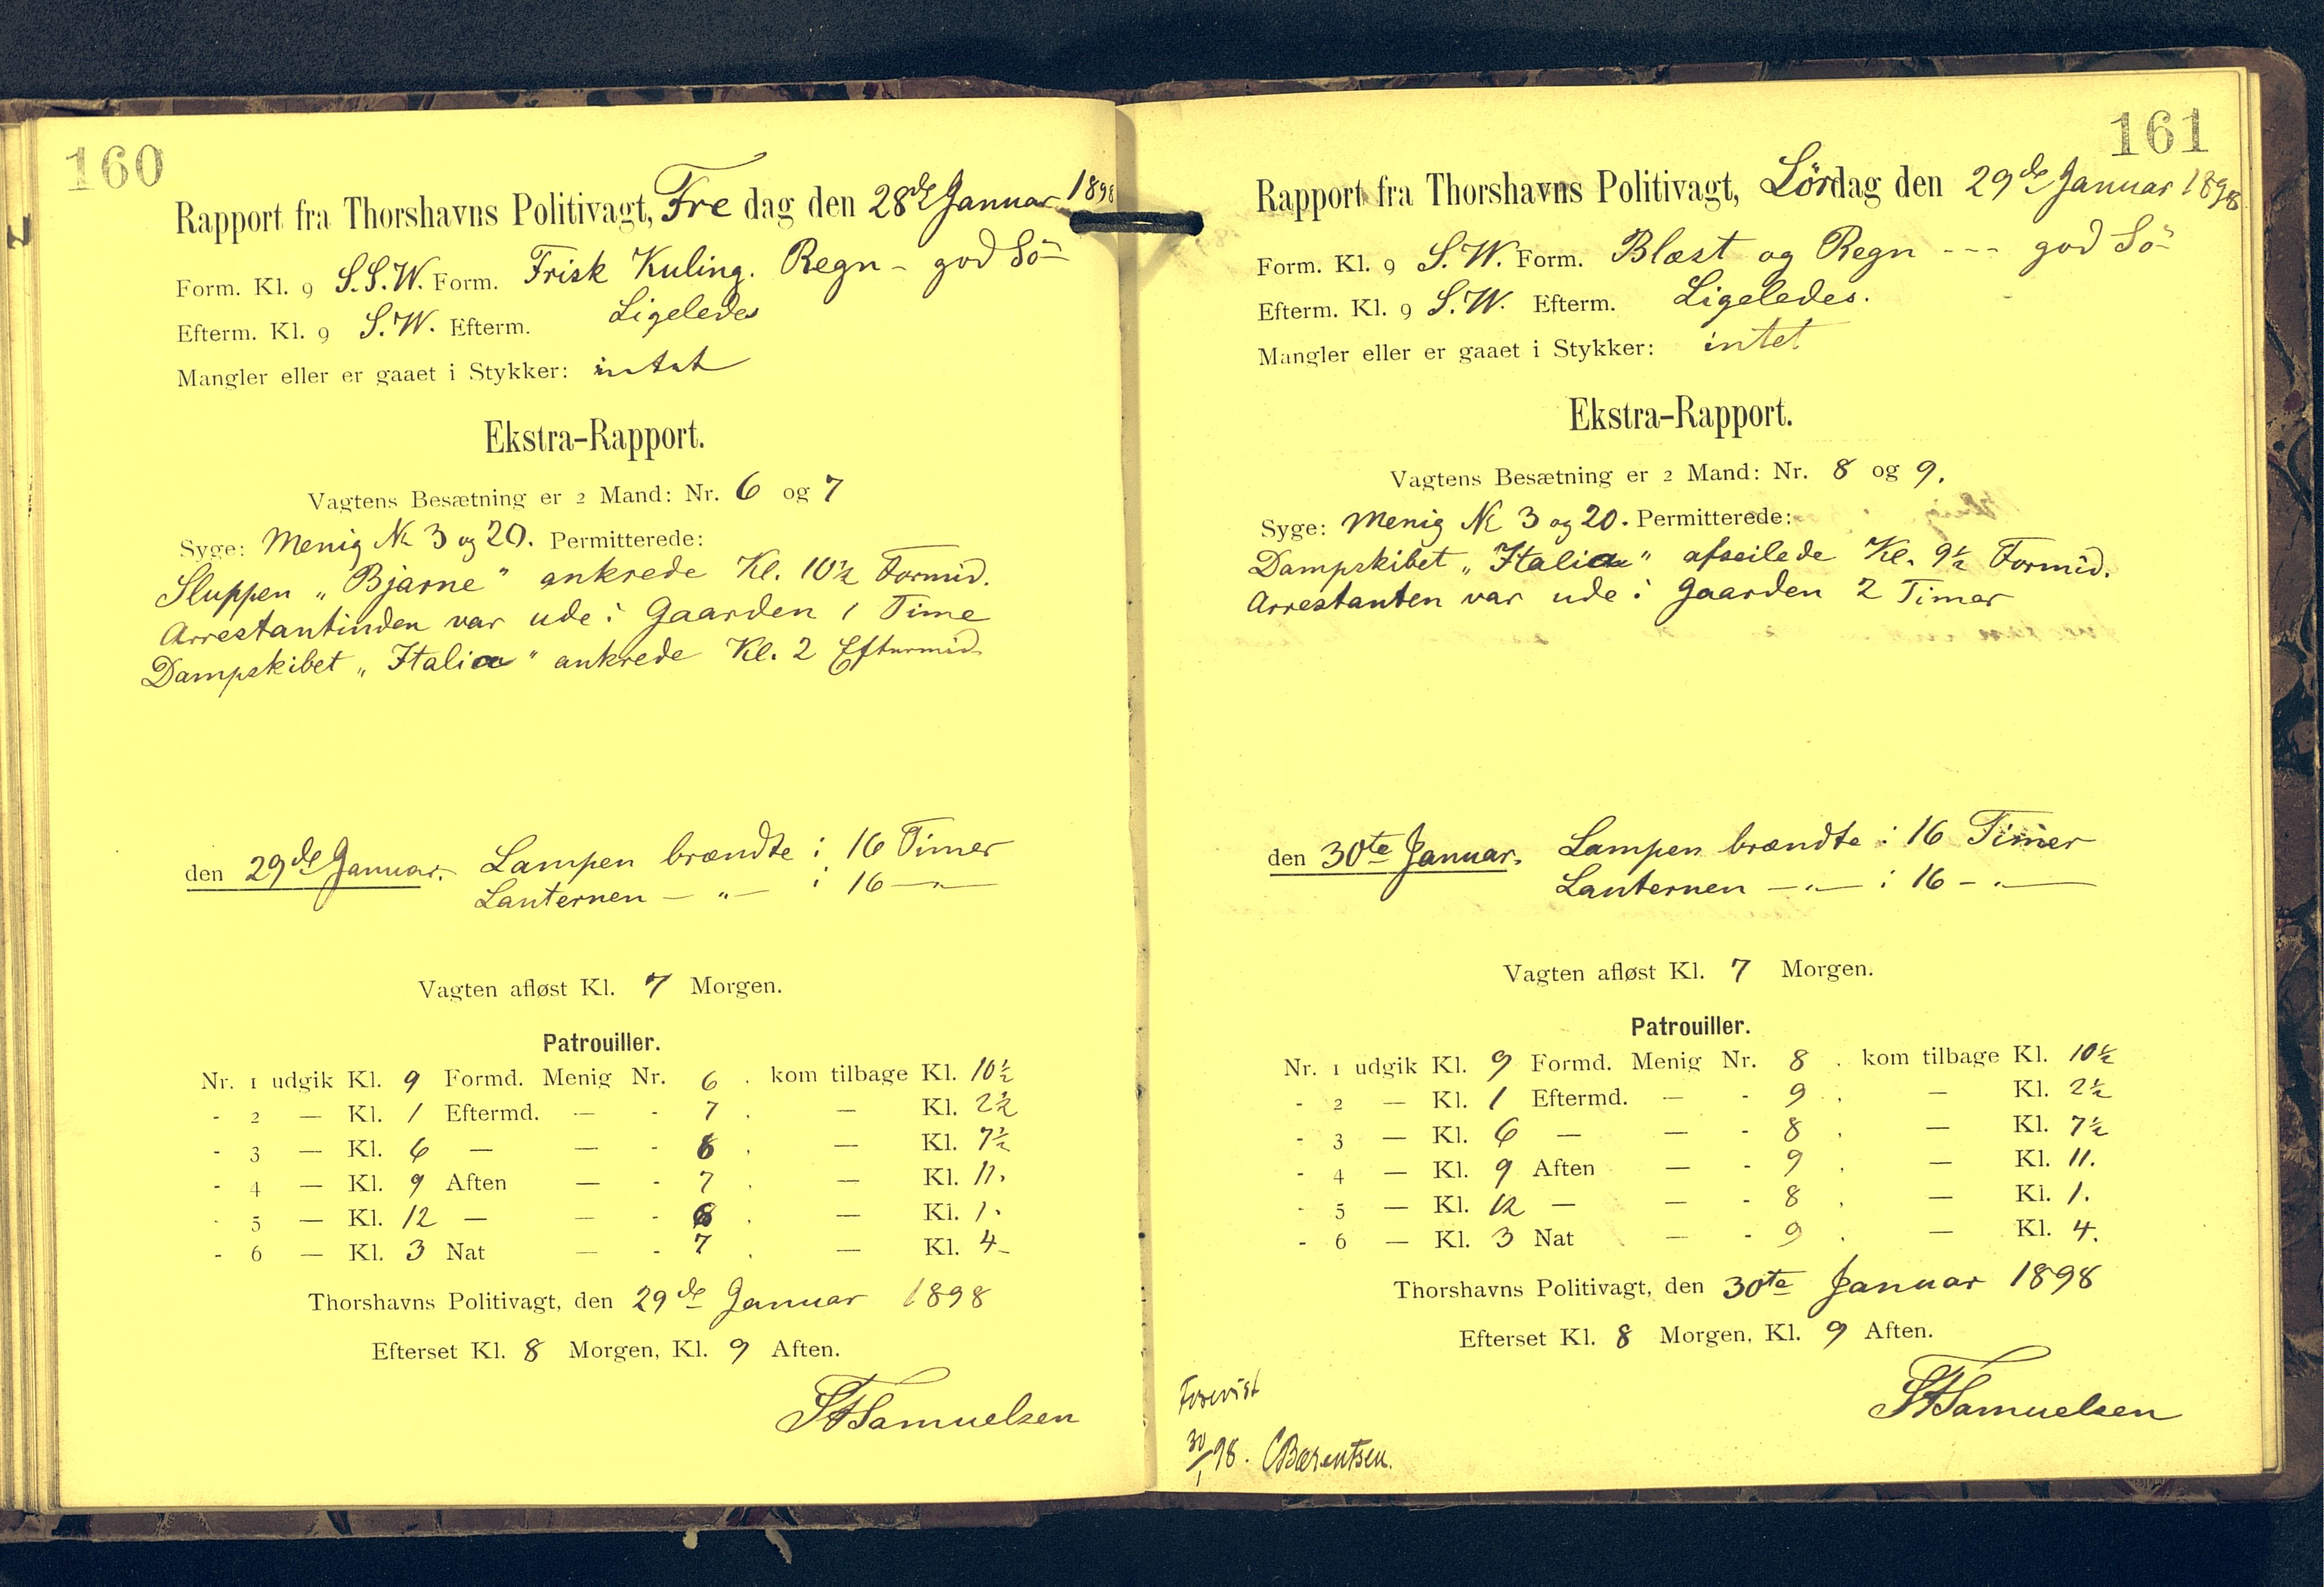 160
Rapport fra Thorshavns Politivagt, Fredag den 28de Januar 1898
Form. Kl. 9 S.S.W. Form. Frisk Kuling. Regn - god Sö -
Efterm. Kl. 9 S.W. Efterm. Ligeledes
Mangler eller er gaaet i Stykker: intet
Ekstra-Rapport.
Vagtens Besætning er 2 Mand: Nr. 6 og 7
Syge: Menig No 3 og 20. Permitterede:
Sluppen „Bjarne" ankrede Kl. 10½ Formid.
Arrestantinden var ude i Gaarden 1 Time
Dampskibet „Italia" ankrede Kl. 2 Eftermid.
den 29de Januar. Lampen brændte i 16 Timer
Lanternen — „ — i 16 — „ —
Vagten afløst Kl. 7 Morgen.
Patrouiller.
Nr. 1 udgik Kl. 9 Formd. Menig Nr. 6 . kom tilbage Kl. 10½
- 2 — Kl. 1 Eftermd. — - 7 . — Kl. 2½
- 3 — Kl. 6 — — - 6 . — Kl. 7½
- 4 — Kl. 9 Aften — - 7 . — Kl. 11.
- 5 — Kl. 12 — — - 6 . — Kl. 1.
- 6 — Kl. 3 Nat — - 7 . — Kl. 4-
Thorshavns Politivagt, den 29de Januar 1898
Efterset Kl. 8 Morgen, Kl. 9 Aften.
SFSamuelsen
161
Rapport fra Thorshavns Politivagt, Lördag den 29de Januar 1898
Form. Kl. 9 S.W. Form. Blæst og Regn --- god Sö -
Efterm. Kl. 9 S.W. Efterm. Ligeledes.
Mangler eller er gaaet i Stykker: intet
Ekstra-Rapport.
Vagtens Besætning er 2 Mand: Nr. 8 og 9.
Syge: Menig No 3 og 20. Permitterede:
Dampskibet „Italia" afseilede Kl. 9½ Formid.
Arrestanten var ude i Gaarden 2 Timer
den 30te Januar. Lampen brændte i 16 Timer
Lanternen — „ — i 16 - „ —
Vagten afløst Kl. 7 Morgen.
Patrouiller.
Nr. 1 udgik Kl. 9 Formd. Menig Nr. 8 . kom tilbage Kl. 10½
- 2 — Kl. 1 Eftermd. — - 9 . — Kl. 2½
- 3 — Kl. 6 — — - 8 . — Kl. 7½
- 4 — Kl. 9 Aften — - 9 . — Kl. 11.
- 5 — Kl. 12 — — - 8 . — Kl. 1.
- 6 — Kl. 3 Nat — - 9 . — Kl. 4.
Thorshavns Politivagt, den 30te Januar 1898
Efterset Kl. 8 Morgen, Kl. 9 Aften.
SFSamuelsen
Forevist
30/1 98. CBærentsen.